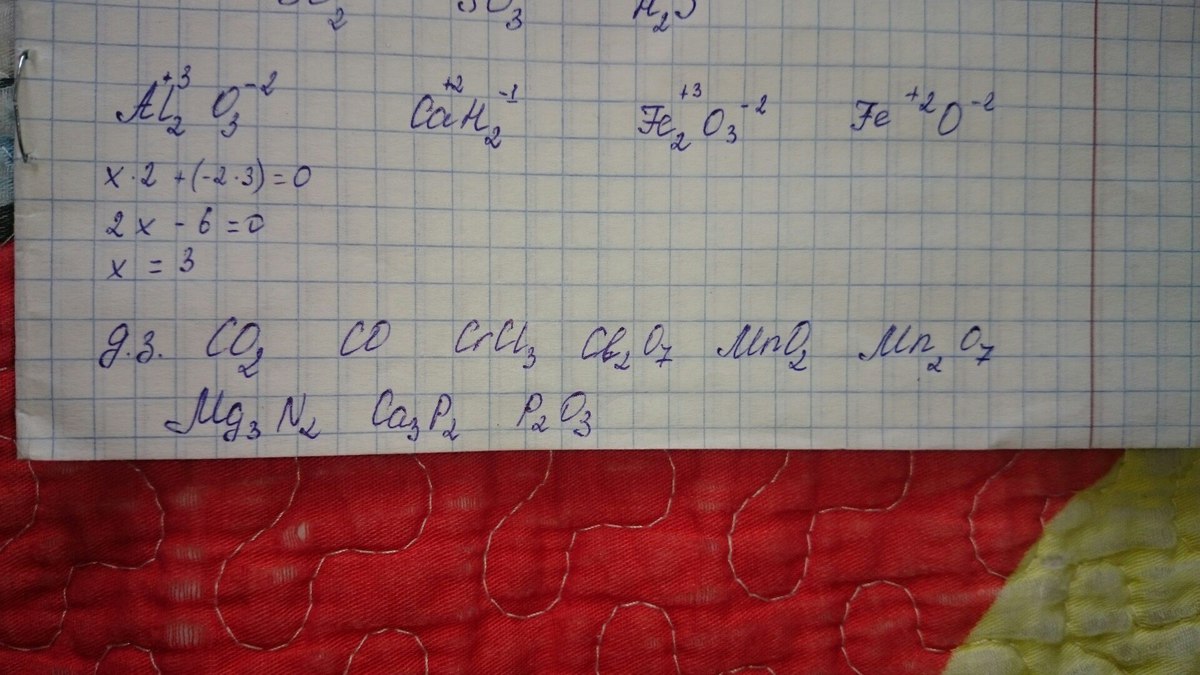 SO₃ H₂S
Al₂⁺³ O₃⁻² CaH₂ ⁺² ⁻¹ Fe₂⁺³ O₃⁻² Fe⁺² O⁻²
x · 2 + (-2 · 3) = 0
2x - 6 = 0
x = 3
Д.З. CO₂ CO CrCl₃ Cl₂O₇ MnO₂ Mn₂O₇
Mg₃N₂ Ca₃P₂ P₂O₃